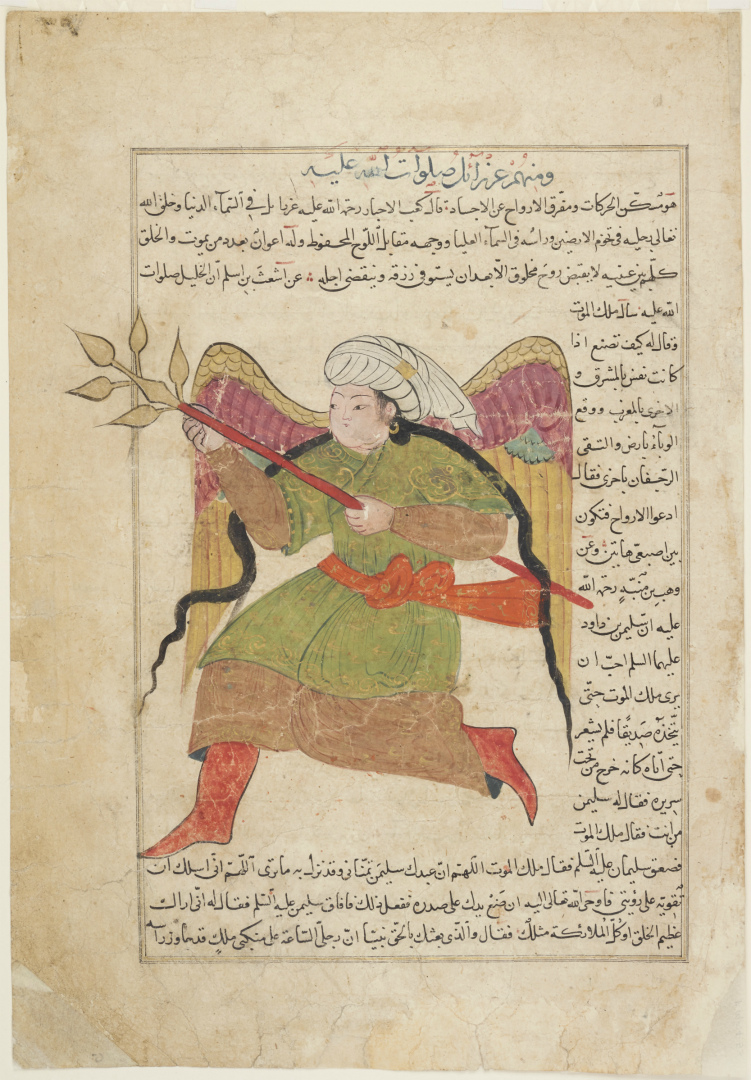 ومنهم عزرائيل صلوات الله عليه
هو مسكن الحركات ومفرق الارواح عن الاجساد قال كعب الاحبار رحمة الله عليه عزرايل في السمآء الدنيا وخلق الله
تعالى رجليه في تخوم الارضين وراسه في السمآء العليا ووجهه مقابلة اللوح المحفوظ وله اعوان بعدد من يموت والخلق
كلهم بين عينيه لا يقبض روح مخلوق الا بعد ان يستوفي رزقه وينقضي اجله عن اشعث بن اسلم ان الخليل صلوات
الله عليه سال ملك الموت
وقال له كيف تصنع اذا
كانت نفس بالمشرق و
الاخرى بالمغرب ووقع
الوباء بارض والتقى
الزحفان باخرى فقال
ادعوا الارواح فتكون
بين اصبعي هاتين وعن
وهب بن منبه رحمة الله
عليه ان سليمن بن داود
عليهما السلم احب ان
يرى ملك الموت حتى
يتخذه صديقا فلم يشعر
حتى اتاه كانه خرج من تحت
سريره فقال له سليمن
من انت فقال ملك الموت
فصعق سليمان عليه السلم فقال ملك الموت اللهم ان عبدك سليمن تمناني وقد نزل به ما ترى اللهم اني اسلك ان
تقويه على رؤيتي فاوحى الله تعالى اليه ان ضع يدك على صدره ففعل ذلك فافاق سليمن عليه السلم فقال له اني اراك
عظيم الخلق او كل الملائكة مثلك فقال والذي بعثك بالحق نبيا ان رجلي الساعة على منكبي ملك قد جاوز راسه